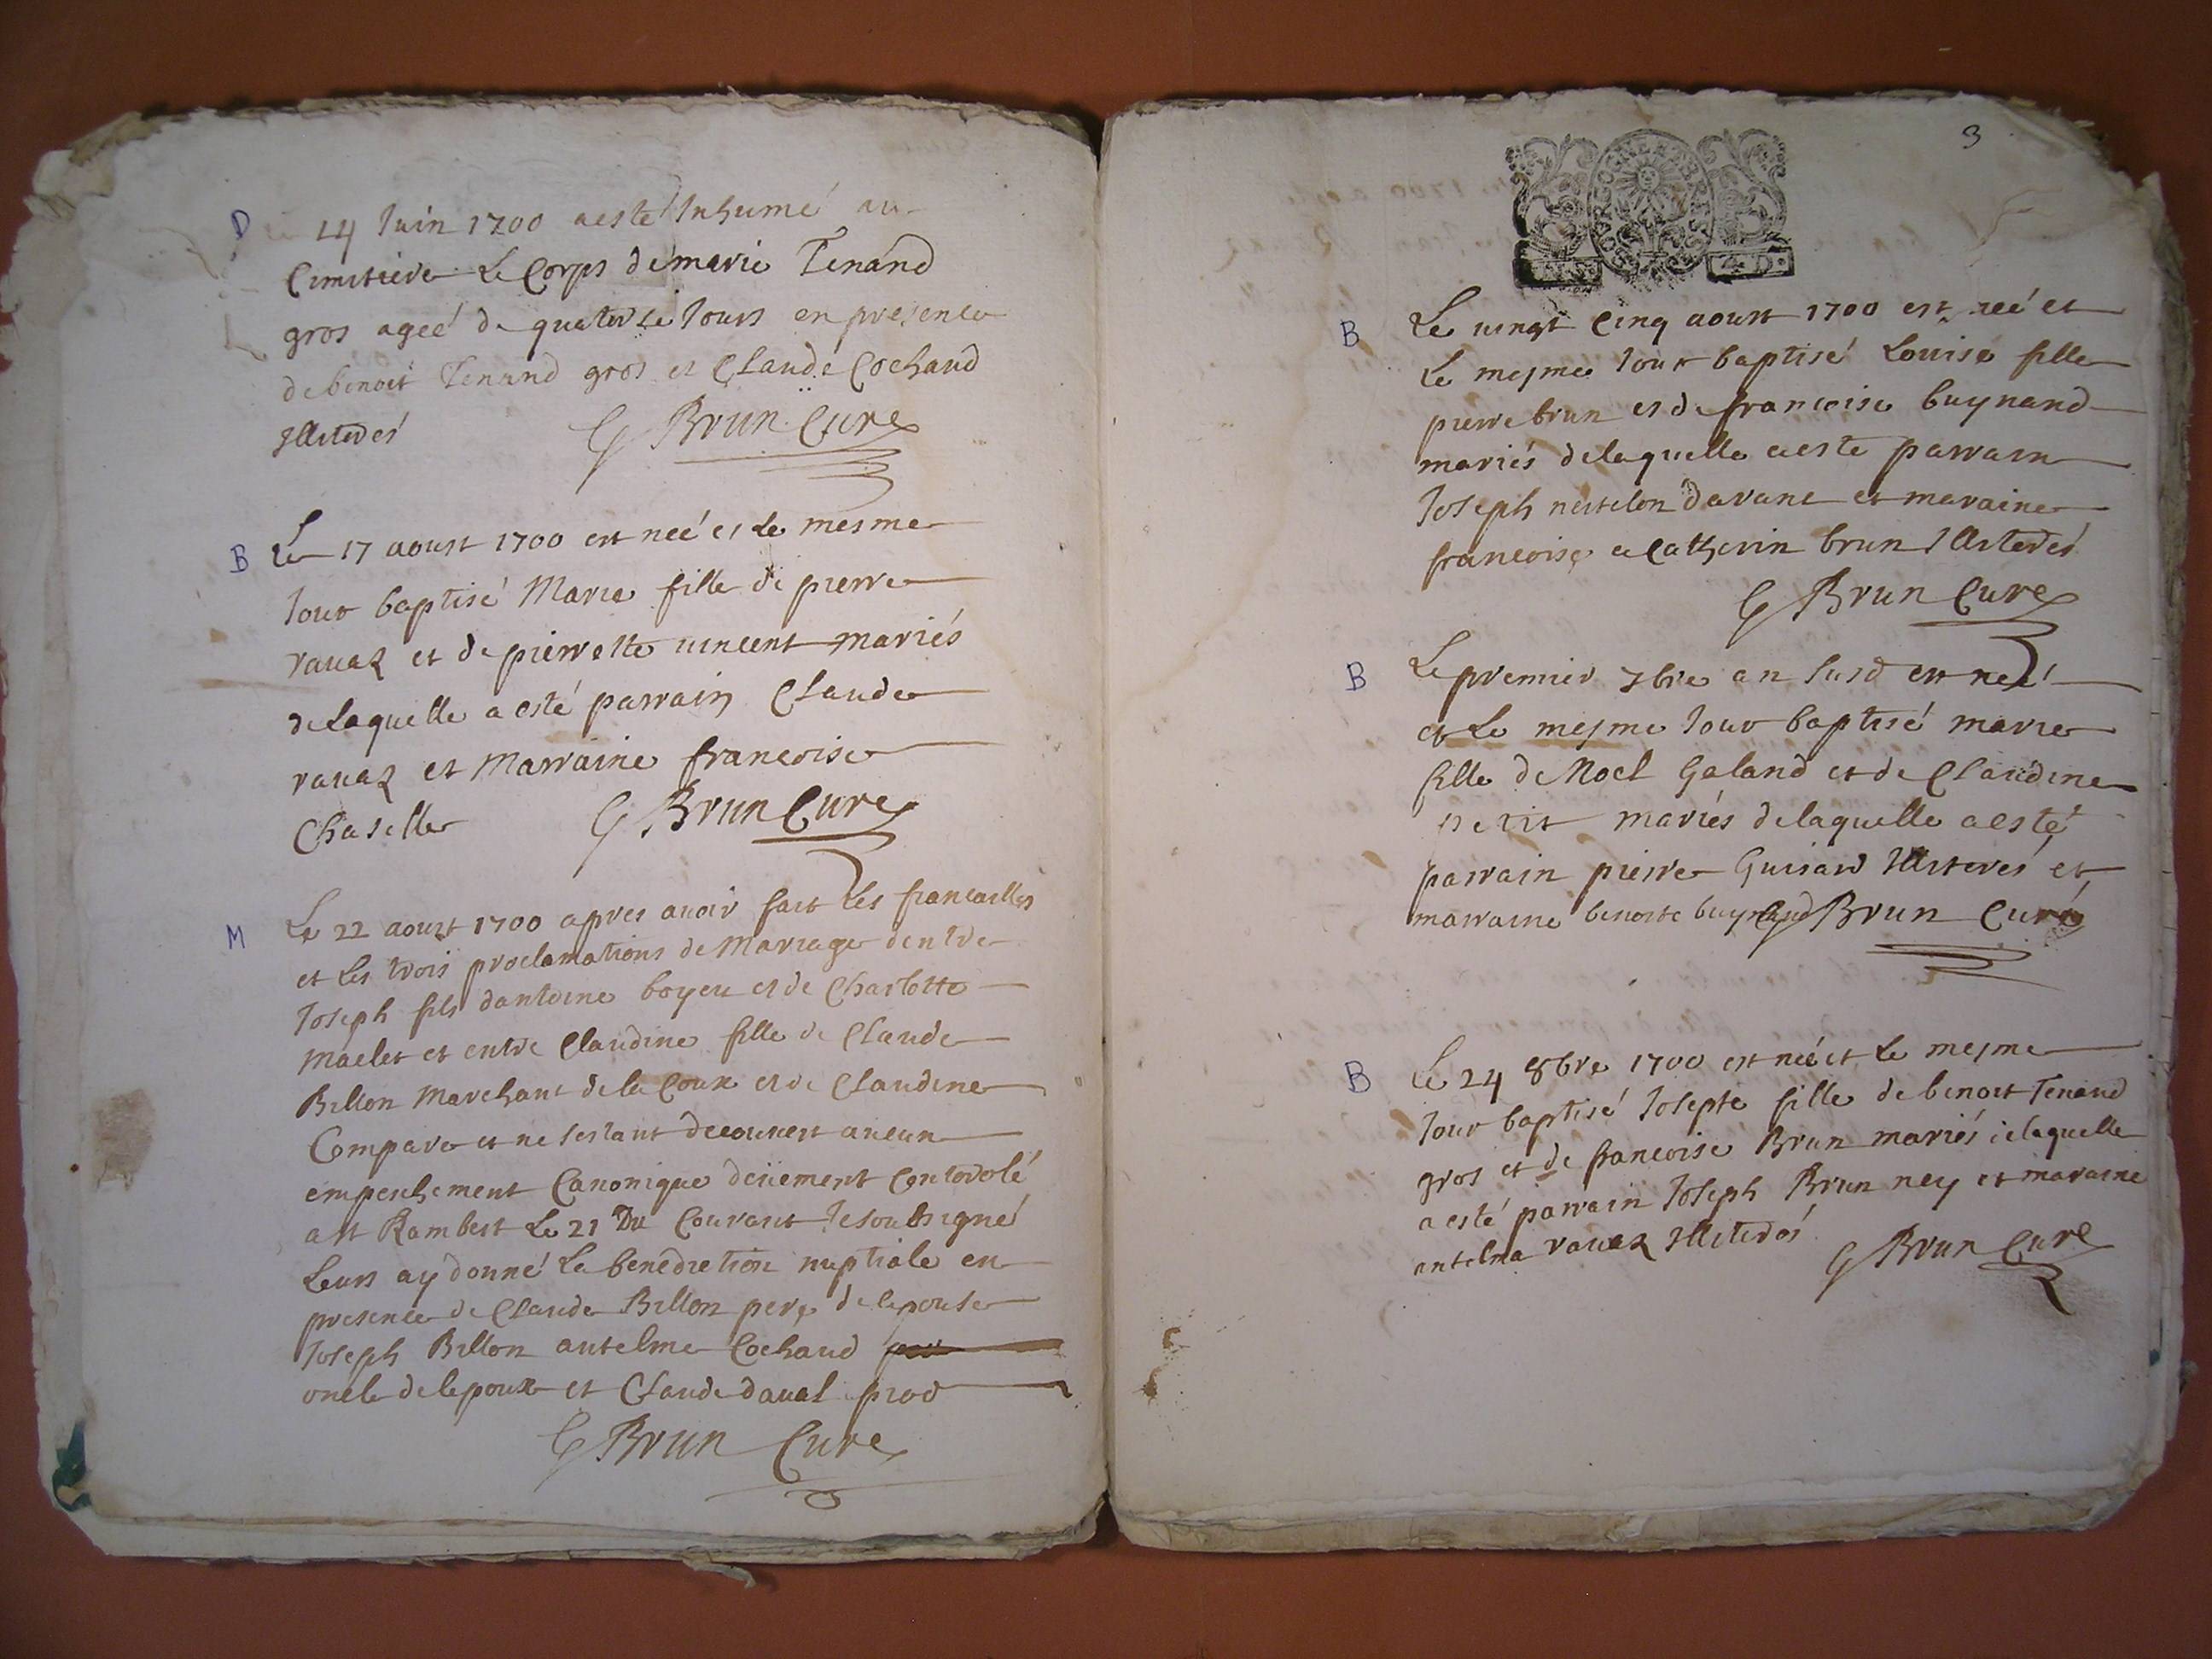 D
14 Juin 1700 a este Inhumé au
Cimitiere Le Corps de marie Tenand
gros ageé de quatorze Jours en presence
de benoit Tenand gros et Claude Cochand
Illiterés
G Brun Cure
B
Le 17 aoust 1700 est neé et Le mesme
Jour baptisé Marie fille de pierre
rauaz et de pierrette uincent mariés
de Laquelle a esté parrain Claude
rauaz et Marraine francoise
Chaselle
G Brun Cure
M
Le 22 aoust 1700 apres auoir fait Les fiancailles
et Les trois proclamations de Mariage dentre
Joseph fils dantoine boyeu et de Charlotte
Maclet et entre Claudine fille de Claude
Billon Marchant de la Coux et de Claudine
Compare et ne sestant decouuert aucun
empeschement Canonique deüement Controlé
a st Rambert Le 21 Du Courant Je soubsigné
Leurs ay donné La benediction nuptiale en
presence de Claude Billon pere de lepouse
Joseph Billon antelme Cochand
oncle de lepoux et Claude daual prod
G Brun Cure
3
4 D
B
Le uingt Cinq aoust 1700 est neé et
Le mesme Jour baptisé Louise fille
pierre brun et de francoise buynand
mariés de laquelle a este parrain
Joseph davane et maraine
francoise a Catherin brun Illiterés
G Brun Cure
B
Le premier 7bre an susd est neé
et Le mesme Jour baptisé marie
fille de Noel Galand et de Claudine
mariés de laquelle a esté
parrain pierre Guisard Illiterés et
marraine benoite buynand G Brun Curé
B
Le 24 8bre 1700 est neé et Le mesme
Jour baptisé Josepte fille de benoit Tenand
gros et de francoise Brun mariés de laquelle
a esté parrain Joseph Brun ney et maraine
antelma rauaz Illiterés
G Brun Cure